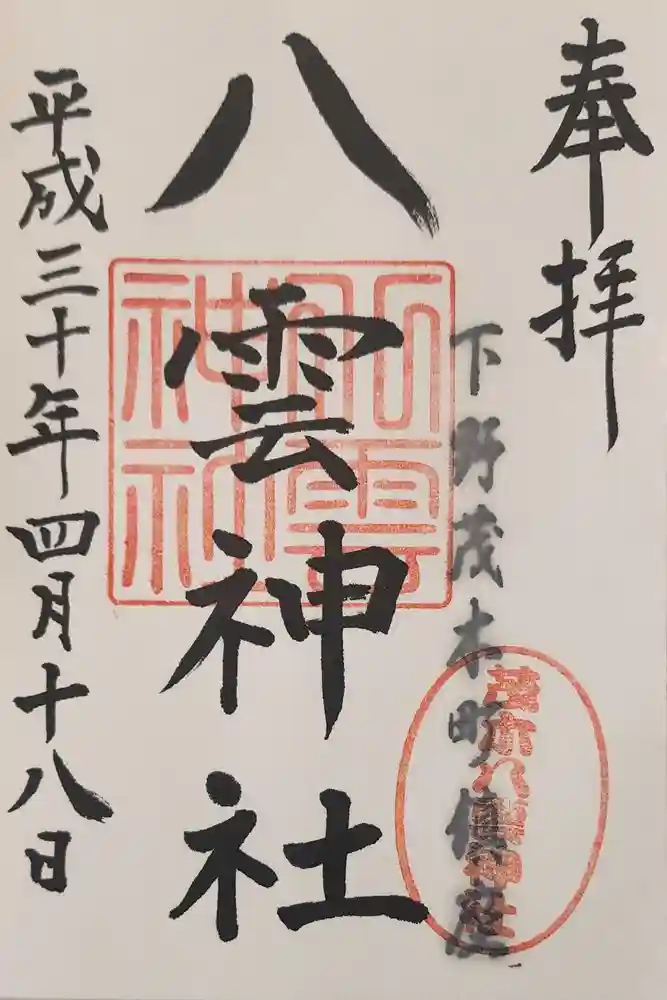 奉拝
下野茂木町鎮座
八雲神社
八雲神社
茂木八雲神社
平成三十年四月十八日